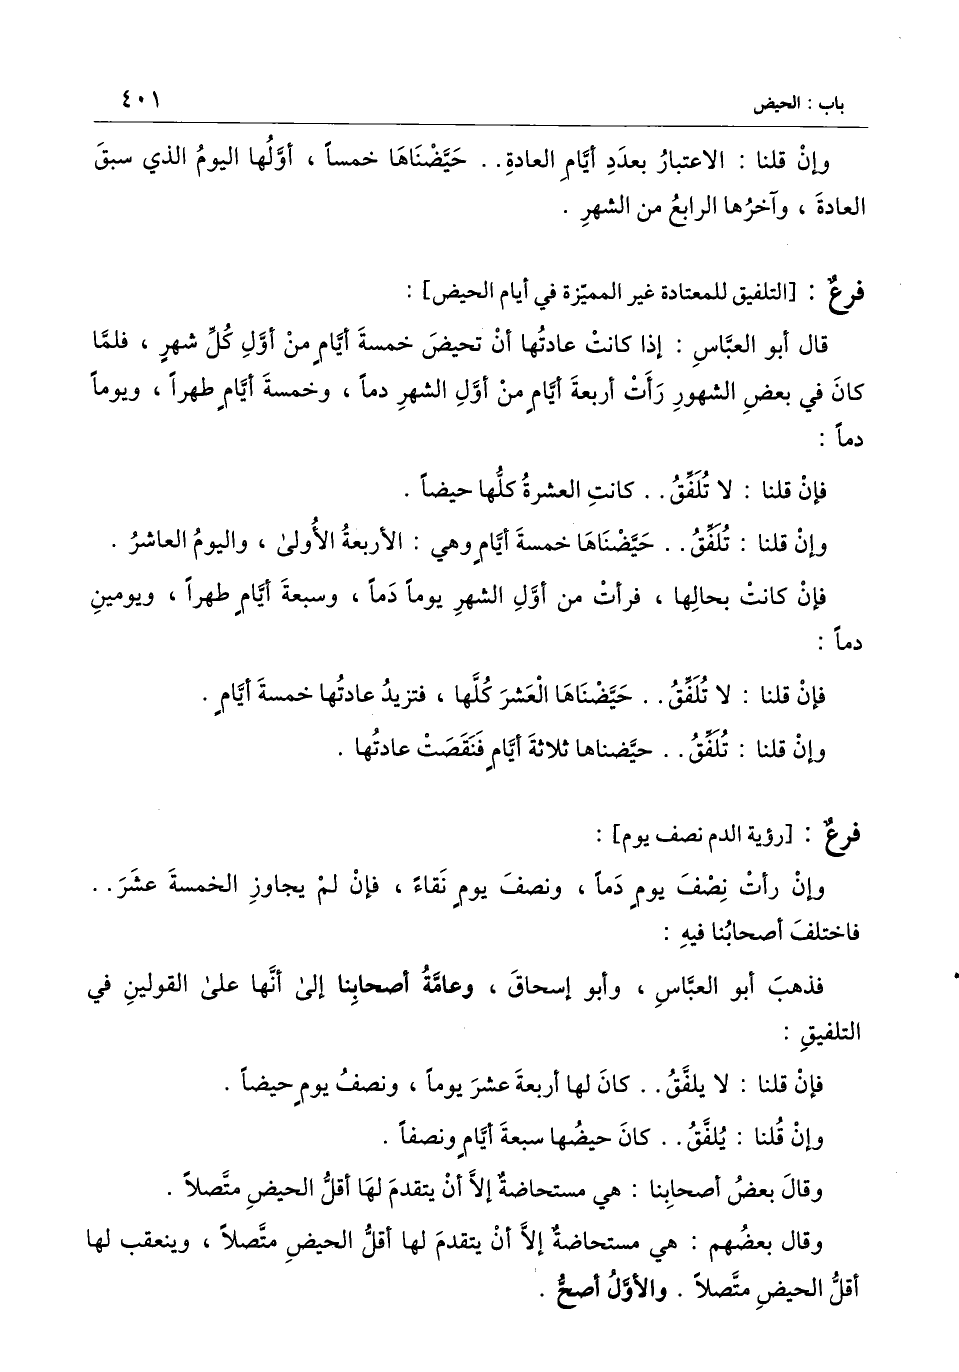 باب : الحيض ٤٠١
وإنْ قلنا : الاعتبارُ بعدَدِ أيَّامِ العادةِ . . حَيَّضْنَاهَا خمساً ، أوَّلُها اليومُ الذي سبقَ
العادةَ ، وآخرُها الرابعُ من الشهرِ .
فرعٌ : [التلفيق للمعتادة غير المميّزة في أيام الحيض] :
قال أبو العبَّاسِ : إذا كانتْ عادتُها أنْ تحيضَ خمسةَ أيَّامٍ منْ أوَّلِ كُلِّ شهرٍ ، فلمَّا
كانَ في بعضِ الشهورِ رَأَتْ أربعةَ أيَّامٍ منْ أوَّلِ الشهرِ دماً ، وخمسةَ أيَّامٍ طهراً ، ويوماً
دماً :
فإنْ قلنا : لا تُلَفِّقُ . . كانتِ العشرةُ كلُّها حيضاً .
وإنْ قلنا : تُلَفِّقُ . . حَيَّضْنَاهَا خمسةَ أيَّامٍ وهي : الأربعةُ الأُولىٰ ، واليومُ العاشرُ .
فإنْ كانتْ بحالِها ، فرأتْ من أوَّلِ الشهرِ يوماً دَماً ، وسبعةَ أيَّامٍ طهراً ، ويومينِ
دماً :
فإنْ قلنا : لا تُلَفِّقُ . . حَيَّضْنَاهَا الْعَشرَ كُلَّها ، فتزيدُ عادتُها خمسةَ أيَّامٍ .
وإنْ قلنا : تُلَفِّقُ . . حيَّضناها ثلاثةَ أيَّامٍ فَنَقَصَتْ عادتُها .
فرعٌ : [رؤية الدم نصف يوم] :
وإنْ رأتْ نِصْفَ يومٍ دَماً ، ونصفَ يومٍ نَقاءً ، فإنْ لمْ يجاوزِ الخمسةَ عشَرَ . .
فاختلفَ أصحابُنا فيهِ :
فذهبَ أبو العبَّاسِ ، وأبو إسحاقَ ، وعامَّةُ أصحابِنا إلىٰ أنَّها علىٰ القولينِ في
التلفيقِ :
فإنْ قلنا : لا يلفَّقُ . . كانَ لها أربعةَ عشرَ يوماً ، ونصفُ يومٍ حيضاً .
وإنْ قُلنا : يُلفَّقُ . . كانَ حيضُها سبعةَ أيَّامٍ ونصفاً .
وقالَ بعضُ أصحابِنا : هي مستحاضةٌ إلاَّ أنْ يتقدمَ لهَا أقلُّ الحيضِ متَّصلاً .
وقال بعضُهم : هي مستحاضةٌ إلاَّ أنْ يتقدمَ لها أقلُّ الحيضِ متَّصلاً ، وينعقب لها
أقلُّ الحيضِ متَّصلاً . والأوَّلُ أصحُّ .